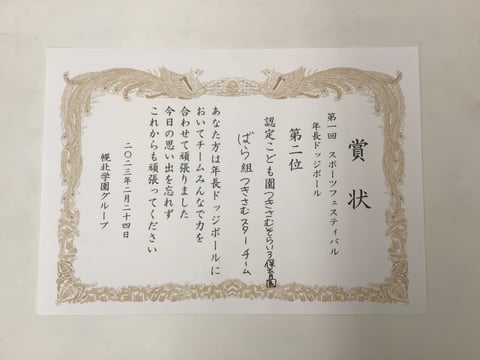 賞状
第一回 スポーツフェスティバル
年長ドッジボール
第二位
認定こども園つきさむそらいろ保育園
ばら組つきさむスターチーム
あなた方は年長ドッジボールに
おいてチームみんなで力を
合わせて頑張りました
今日の思い出を忘れず
これからも頑張ってください
二〇二三年二月二十四日
幌北学園グループ